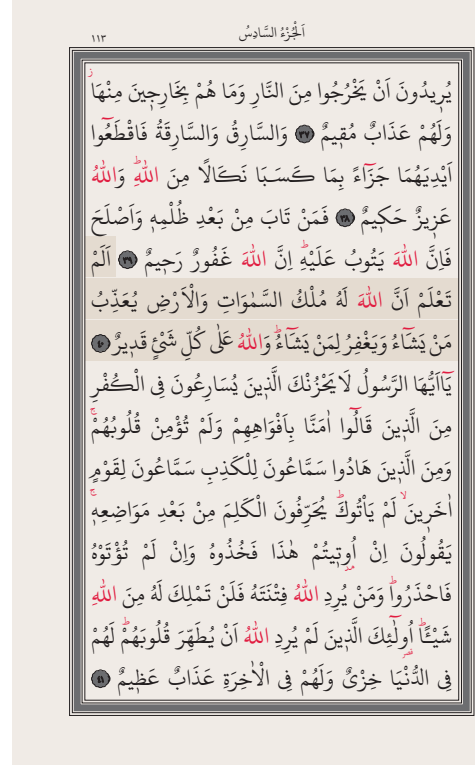 اَلْجُزْءُ السَّادِسُ
١١٣
يُرِيدُونَ اَنْ يَخْرُجُوا مِنَ النَّارِ وَمَا هُمْ بِخَارِجِينَ مِنْهَاۘ
وَلَهُمْ عَذَابٌ مُقِيمٌ ﴿٣٧﴾ وَالسَّارِقُ وَالسَّارِقَةُ فَاقْطَعُٓوا
اَيْدِيَهُمَا جَزَٓاءً بِمَا كَسَبَا نَكَالًا مِنَ اللّٰهِۜ وَاللّٰهُ
عَزِيزٌ حَكِيمٌ ﴿٣٨﴾ فَمَنْ تَابَ مِنْ بَعْدِ ظُلْمِهِ وَاَصْلَحَ
فَاِنَّ اللّٰهَ يَتُوبُ عَلَيْهِۜ اِنَّ اللّٰهَ غَفُورٌ رَحِيمٌ ﴿٣٩﴾ اَلَمْ
تَعْلَمْ اَنَّ اللّٰهَ لَهُ مُلْكُ السَّمٰوَاتِ وَالْاَرْضِ يُعَذِّبُ
مَنْ يَشَٓاءُ وَيَغْفِرُ لِمَنْ يَشَٓاءُۜ وَاللّٰهُ عَلٰى كُلِّ شَيْءٍ قَدِيرٌ ﴿٤٠﴾
يَٓا اَيُّهَا الرَّسُولُ لَا يَحْزُنْكَ الَّذِينَ يُسَارِعُونَ فِي الْكُفْرِ
مِنَ الَّذِينَ قَالُٓوا اٰمَنَّا بِاَفْوَاهِهِمْ وَلَمْ تُؤْمِنْ قُلُوبُهُمْۚ
وَمِنَ الَّذِينَ هَادُوا سَمَّاعُونَ لِلْكَذِبِ سَمَّاعُونَ لِقَوْمٍ
اٰخَرِينَۙ لَمْ يَأْتُوكَۜ يُحَرِّفُونَ الْكَلِمَ مِنْ بَعْدِ مَوَاضِعِهِۚ
يَقُولُونَ اِنْ اُو۫تِيتُمْ هٰذَا فَخُذُوهُ وَاِنْ لَمْ تُؤْتَوْهُ
فَاحْذَرُواۜ وَمَنْ يُرِدِ اللّٰهُ فِتْنَتَهُ فَلَنْ تَمْلِكَ لَهُ مِنَ اللّٰهِ
شَيْـًٔاۜ اُو۬لٰٓئِكَ الَّذِينَ لَمْ يُرِدِ اللّٰهُ اَنْ يُطَهِّرَ قُلُوبَهُمْۜ لَهُمْ
فِي الدُّنْيَا خِزْيٌ وَلَهُمْ فِي الْاٰخِرَةِ عَذَابٌ عَظِيمٌ ﴿٤١﴾